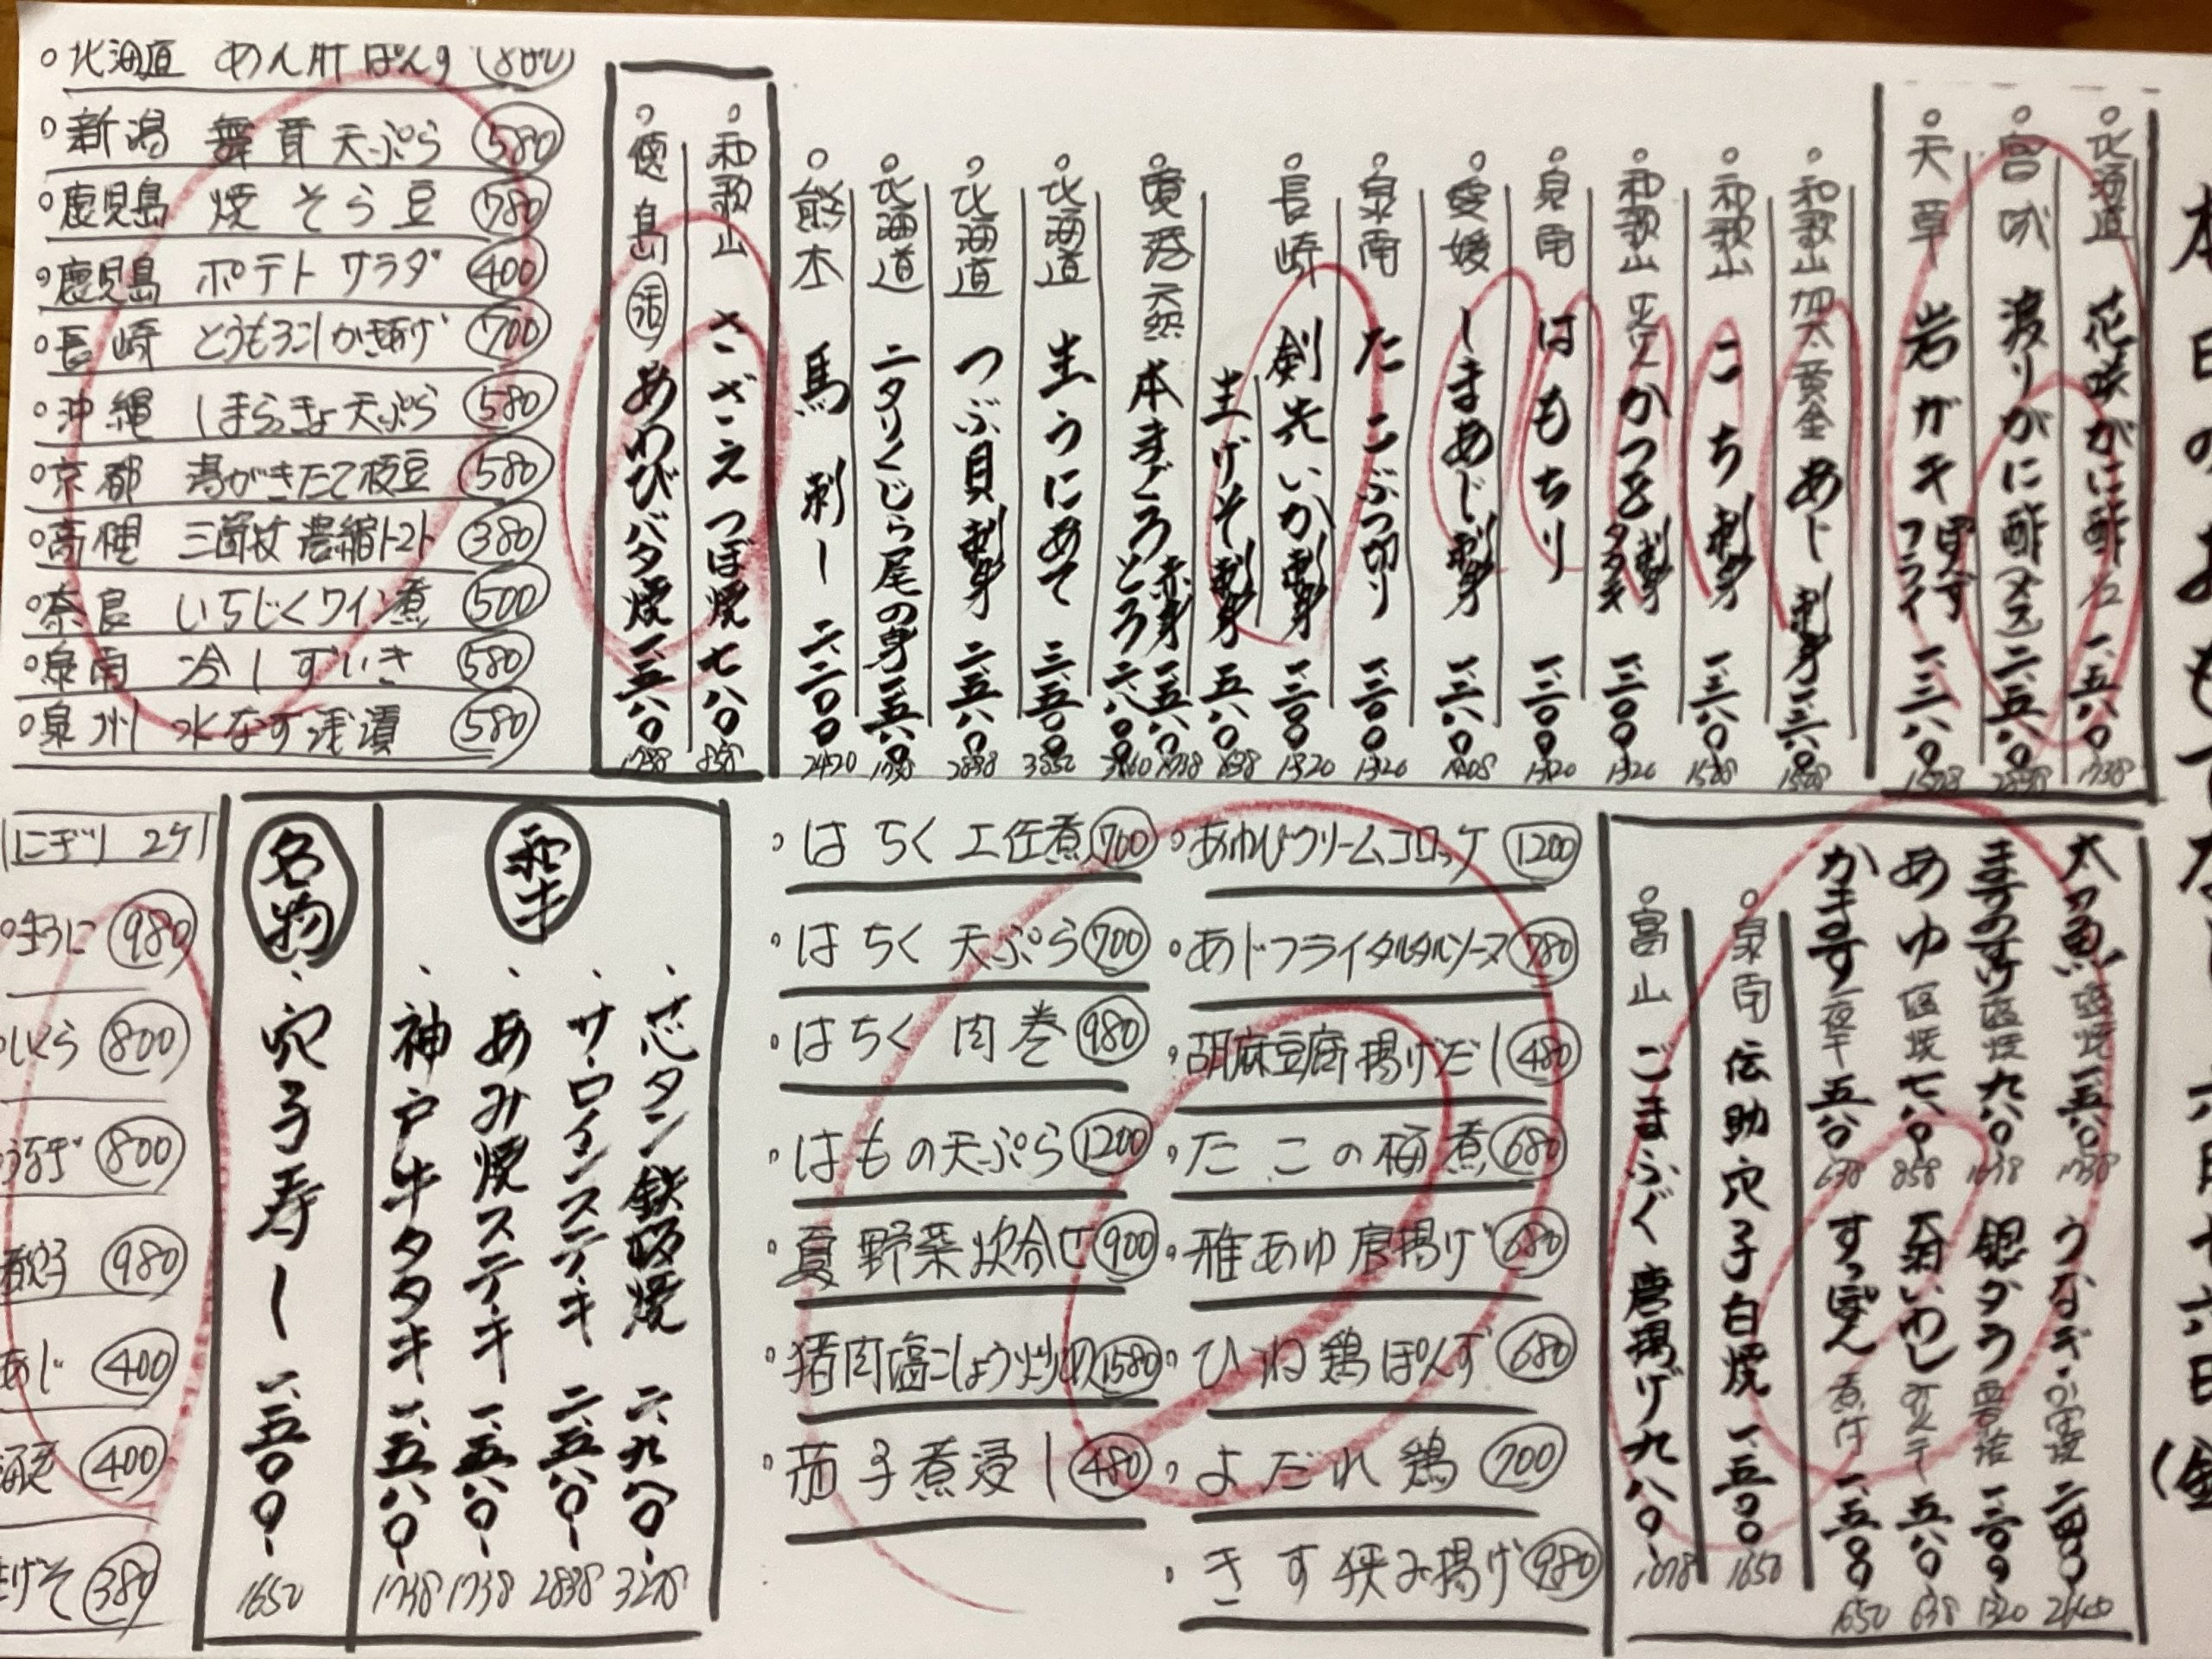 本日のおもてなし
(金
北海道 花咲がに酢 1/2 一、五八〇 1738
宮城 渡りがに酢(メス) 二、五八〇 2838
天草 岩ガキ ぽんず フライ 一、三八〇 1518
和歌山 加太 黄金あじ 刺身 一、三八〇 1518
和歌山 こち 刺身 一、三八〇 1518
和歌山 かつを 刺身 タタキ 一、二〇〇 1320
泉南 はもちり 一、二〇〇 1320
愛媛 しまあじ 刺身
泉南 たこぶつ切り 一、二〇〇 1320
長崎 剣先いか 刺身 一、二〇〇 1320
生げそ 刺身 五八〇 638
天然 本まぐろ 赤身 一、五八〇 1738
とろ 二、八〇〇
北海道 生うにあて 三、五〇〇 3850
北海道 つぶ貝 刺身 二、五八〇 2838
北海道 ニタリくじら尾の身 一、五八〇 1738
熊本 馬刺し 二、二〇〇 2420
和歌山 さざえつぼ焼 七八〇 858
徳島 活 あわびバタ焼
北海道 あん肝ぽんず
新潟 舞茸天ぷら 580
鹿児島 焼そら豆 780
鹿児島 ポテトサラダ 400
長崎 とうもろこしかき揚げ 700
沖縄 しまらっきょ天ぷら 580
京都 湯がきたて枝豆 580
高槻 三箇牧 濃縮トマト 380
奈良 いちじくワイン煮 500
泉南 冷しずいき 580
泉州 水なす浅漬 580
太刀魚 塩焼 一、五八〇 1738
ますのすけ 塩焼 九八〇 1078
あゆ 塩焼 七八〇 858
かます 一夜干 五八〇 638
うなぎ 二、四〇〇 2640
銀ダラ 西京焼 一、二〇〇 1320
いわし 五八〇 638
すっぽん 煮付 一、五〇〇 1650
泉南 伝助穴子白焼 一、五〇〇 1650
富山 ごまふぐ 唐揚げ 九八〇 1078
あゆびクリームコロッケ 1200
あじフライタルタルソース 780
胡麻豆腐揚げだし 480
たこの梅煮 680
稚あゆ唐揚げ 680
ひね鶏ぽんず 680
よだれ鶏 700
きす挟み揚げ 980
はちく 土佐煮 700
はちく 天ぷら 700
はちく 肉巻 980
はもの天ぷら 1200
夏野菜炊合せ 900
猪肉塩こしょう炒め 1580
茄子煮浸し 480
和牛
芯タン鉄板焼 二、九八〇 3278
サーロインステーキ 二、五八〇 2838
あみ焼ステーキ 一、五八〇 1738
神戸牛タタキ 一、五八〇 1738
名物
穴子寿し 一、五〇〇 1650
にぎり 2ケ
生うに 980
いくら 800
うなぎ 800
980
あじ 400
400
生げそ 380